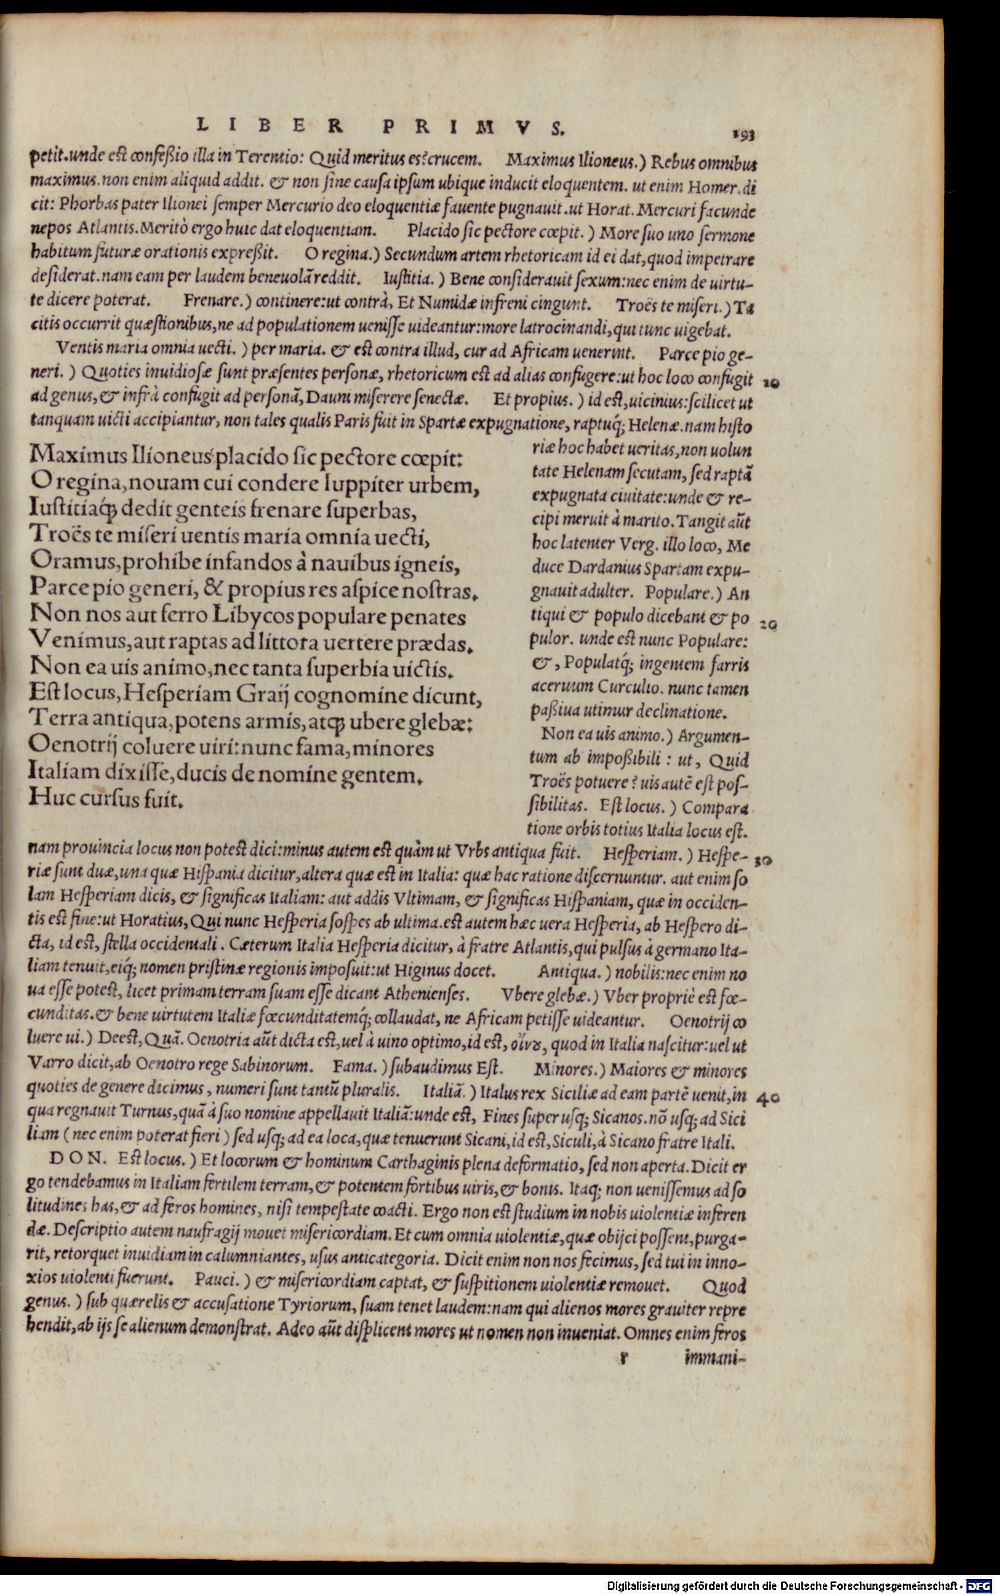 LIBER PRIMVS.
193
petit.unde est confeßio illa in Terentio: Quid meritus es? crucem. Maximus Ilioneus.) Rebus omnibus
maximus.non enim aliquid addit. & non sine causa ipsum ubique inducit eloquentem. ut enim Homer.di
cit: Phorbas pater Ilionei semper Mercurio deo eloquentiæ fauente pugnauit.ut Horat. Mercuri facunde
nepos Atlantis.Meritò ergo huic dat eloquentiam. Placido sic pectore cœpit.) More suo uno sermone
habitum futuræ orationis expreßit. O regina.) Secundum artem rhetoricam id ei dat,quod impetrare
desiderat.nam eam per laudem beneuolã reddit. Iustitia.) Bene considerauit sexum:nec enim de uirtu-
te dicere poterat. Frenare.) continere:ut contrà, Et Numidæ infreni cingunt. Troës te miseri.) Ta
citis occurrit quæstionibus,ne ad populationem uenisse uideantur:more latrocinandi,qui tunc uigebat.
Ventis maria omnia uecti.) per maria. & est contra illud, cur ad Africam uenerint. Parce pio ge-
neri.) Quoties inuidiosæ sunt præsentes personæ, rhetoricum est ad alias confugere:ut hoc loco confugit 10
ad genus,& infrà confugit ad personã, Dauni miserere senectæ. Et propius.) id est,uicinius:scilicet ut
tanquam uicti accipiantur, non tales qualis Paris fuit in Spartæ expugnatione, raptuq; Helenæ.nam histo
Maximus Ilioneus placido sic pectore cœpit:
O regina,nouam cui condere Iuppiter urbem,
Iustitiaq; dedit genteis frenare superbas,
Troës te miseri uentis maria omnia uecti,
Oramus,prohibe infandos à nauibus igneis,
Parce pio generi, & propius res aspice nostras.
Non nos aut ferro Libycos populare penates
Venimus,aut raptas ad littora uertere prædas.
Non ea uis animo,nec tanta superbia uictis.
Est locus,Hesperiam Graij cognomine dicunt,
Terra antiqua,potens armis,atq; ubere glebæ:
Oenotrij coluere uiri:nunc fama,minores
Italiam dixisse,ducis de nomine gentem.
Huc cursus fuit.
riæ hoc habet ueritas,non uolun
tate Helenam secutam, sed raptã
expugnata ciuitate:unde & re-
cipi meruit à marito.Tangit aũt
hoc latenter Verg. illo loco, Me
duce Dardanius Spartam expu-
gnauit adulter. Populare.) An
tiqui & populo dicebant & po 20
pulor. unde est nunc Populare:
&, Populatq; ingentem farris
aceruum Curculio. nunc tamen
paßiua utimur declinatione.
Non ea uis animo.) Argumen-
tum ab impoßibili: ut, Quid
Troës potuere? uis autẽ est pos-
sibilitas. Est locus.) Compara
tione orbis totius Italia locus est.
nam prouincia locus non potest dici:minus autem est quàm ut Vrbs antiqua fuit. Hesperiam.) Hespe- 30
riæ sunt duæ,una quæ Hispania dicitur,altera quæ est in Italia: quæ hac ratione discernuntur. aut enim so
lam Hesperiam dicis, & significas Italiam: aut addis Vltimam, & significas Hispaniam, quæ in occiden-
tis est fine:ut Horatius,Qui nunc Hesperia sospes ab ultima.est autem hæc uera Hesperia, ab Hespero di-
cta, id est, stella occidentali. Cæterum Italia Hesperia dicitur, à fratre Atlantis,qui pulsus à germano Ita-
liam tenuit,eiq; nomen pristinæ regionis imposuit:ut Higinus docet. Antiqua.) nobilis:nec enim no
ua esse potest, licet primam terram suam esse dicant Athenienses. Vbere glebæ.) Vber propriè est fœ-
cunditas.& bene uirtutem Italiæ fœcunditatemq; collaudat, ne Africam petisse uideantur. Oenotrij co
luere ui.) Deest,Quã. Oenotria aũt dicta est,uel à uino optimo,id est, οἴνου, quod in Italia nascitur:uel ut
Varro dicit,ab Oenotro rege Sabinorum. Fama.) subaudimus Est. Minores.) Maiores & minores
quoties de genere dicimus, numeri sunt tantũ pluralis. Italiã.) Italus rex Siciliæ ad eam partẽ uenit,in 40
qua regnauit Turnus,quã à suo nomine appellauit Italiã:unde est, Fines super usq; Sicanos.nõ usq; ad Sici
liam (nec enim poterat fieri) sed usq; ad ea loca,quæ tenuerunt Sicani,id est,Siculi,à Sicano fratre Itali.
DON. Est locus.) Et locorum & hominum Carthaginis plena deformatio, sed non aperta.Dicit er
go tendebamus in Italiam fertilem terram,& potentem fortibus uiris,& bonis. Itaq; non uenissemus ad so
litudines has,& ad feros homines, nisi tempestate coacti. Ergo non est studium in nobis uiolentiæ inferen
dæ. Descriptio autem naufragij mouet misericordiam. Et cum omnia uiolentiæ,quæ obijci possent,purga-
rit, retorquet inuidiam in calumniantes, usus anticategoria. Dicit enim non nos fecimus, sed tui in inno-
xios uiolenti fuerunt. Pauci.) & misericordiam captat, & suspitionem uiolentiæ remouet. Quod
genus.) sub quærelis & accusatione Tyriorum, suam tenet laudem:nam qui alienos mores grauiter repre
hendit,ab ijs se alienum demonstrat. Adeo aũt displicent mores ut nomen non inueniat. Omnes enim feros
r immani-
Digitalisierung gefördert durch die Deutsche Forschungsgemeinschaft - DFG